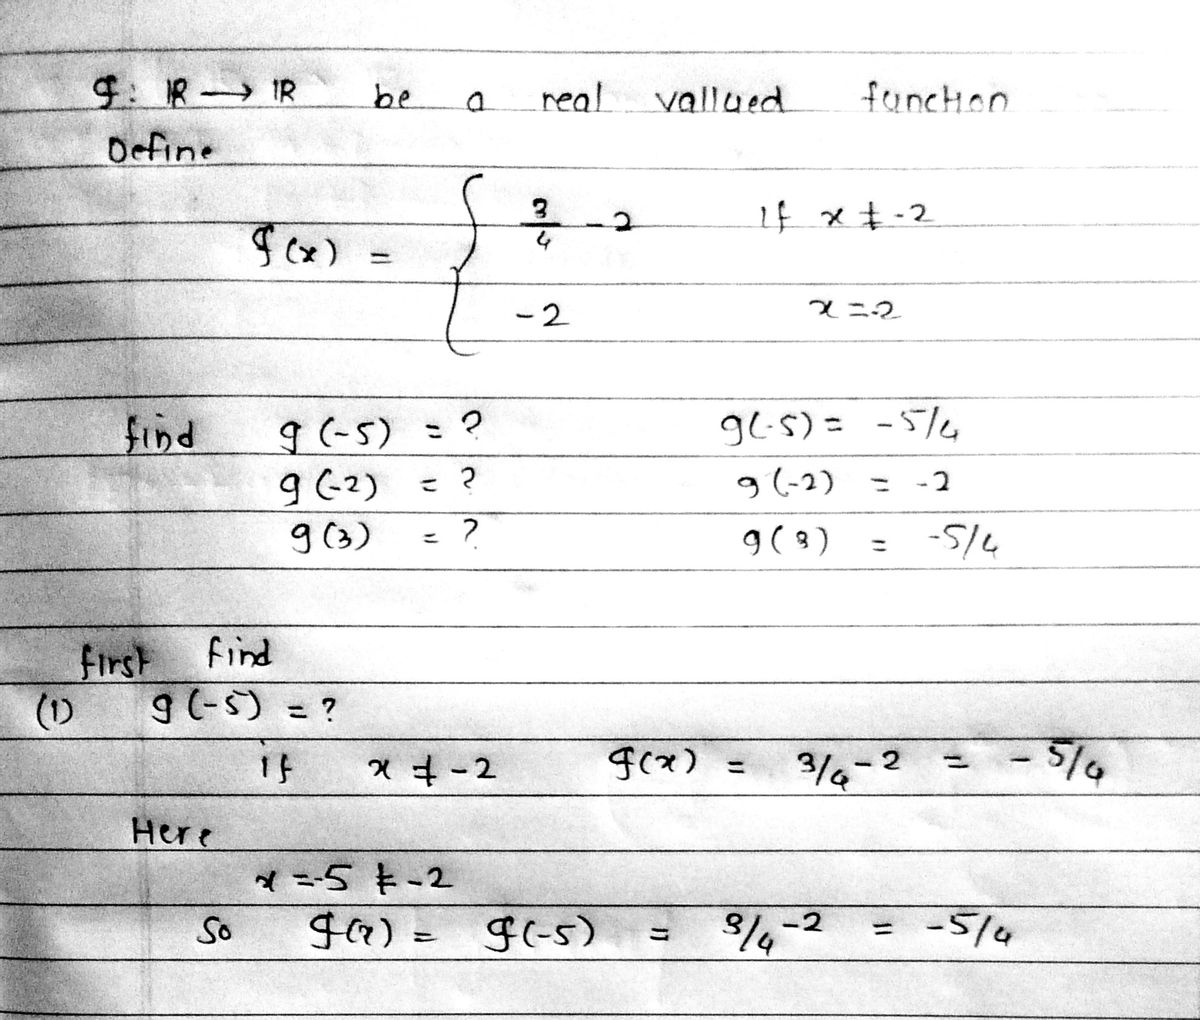 g: ℝ → ℝ be a real vallued function
Define
g(x) = { 3/4 - 2 if x ≠ -2
-2 x = -2
find g(-5) = ? g(-5) = -5/4
g(-2) = ? g(-2) = -2
g(3) = ? g(3) = -5/4
first find
(1) g(-5) = ?
if x ≠ -2 g(x) = 3/4 - 2 = - 5/4
Here
x = -5 ≠ -2
So g(x) = g(-5) = 3/4 - 2 = -5/4